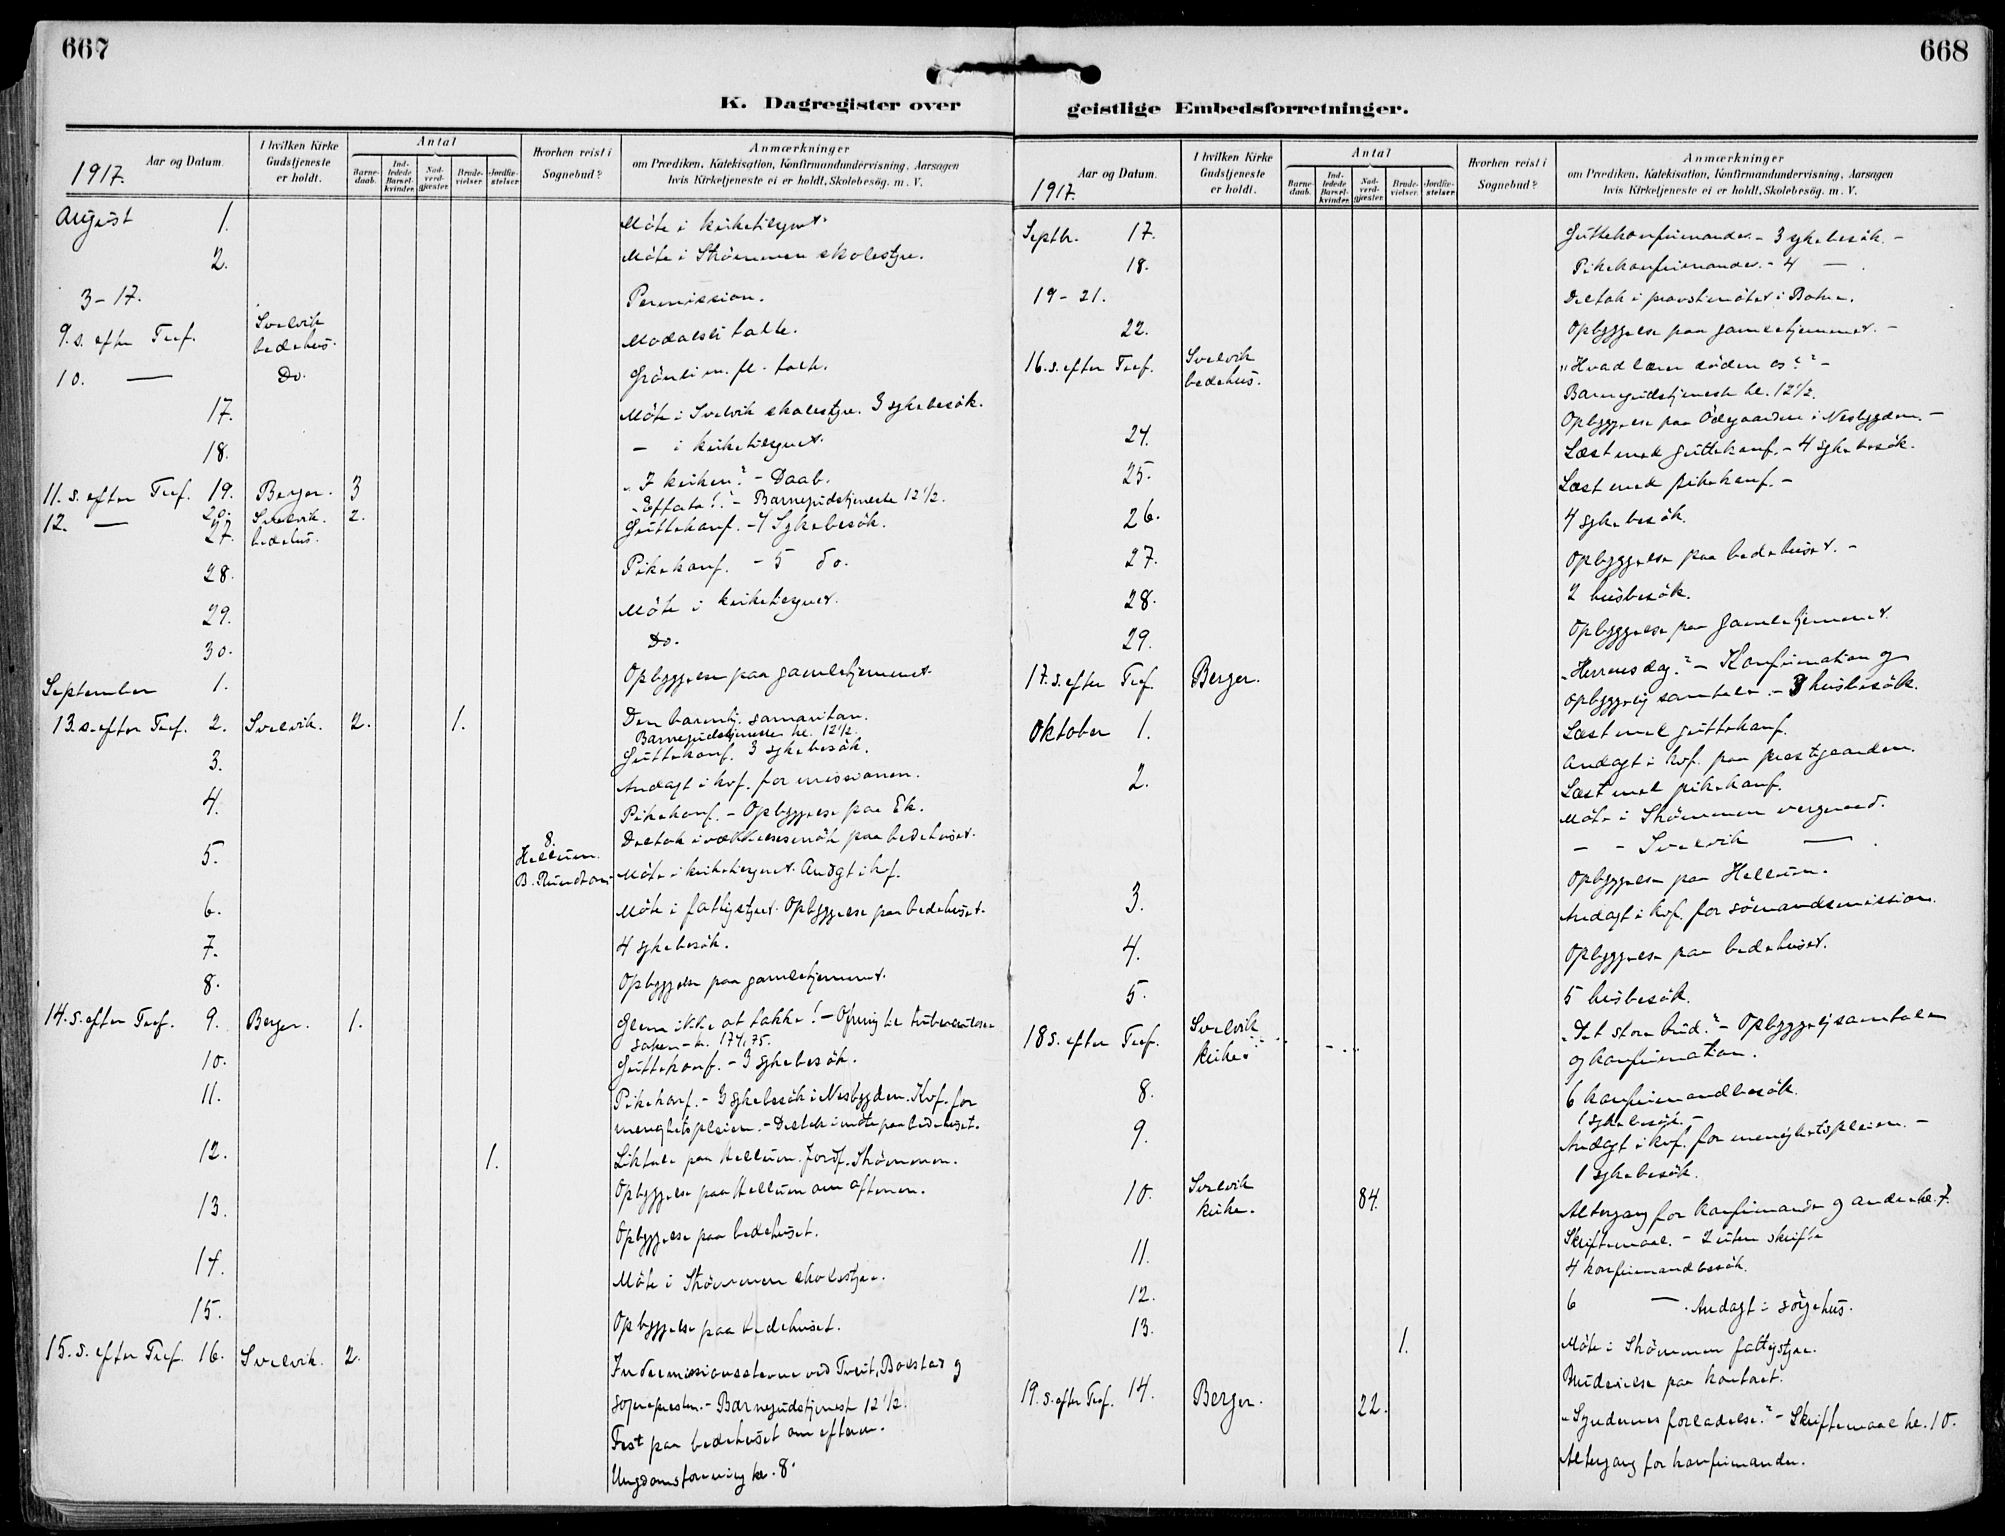 667
K. Dagregister over
Aar og Datum.
1917.
I hvilken Kirke
Gudstjeneste
er holdt.
Antal
Barne-
daab.
Ind-
ledede
Barsel-
kvinder.
Nad-
verd-
gjæster.
Brude-
vielser.
Jordfæ-
stelser.
Hvorhen reist i
Sognebud?
Anmærkninger
om Prædiken, Katekisation, Konfirmandundervisning, Aarsagen
hvis Kirketjeneste ei er holdt, Skolebesøg. m. V.
August 1. Möte i kirketilsynet.
2. Möte i Strömmen skolestyre.
3-17. Permission.
9. s. efter Tref. Svelvik bedehus. talte.
10. — Do. m. fl. talte.
17. Möte i Svelvik skolestyre. 3 sykebesök.
18. — i kirketilsynet.
11. s. efter Tref. 19. Berger. 3 „I kirken“ - Daab.
20. „Effata!“ - Barnegudstjeneste 12½.
12. — 27. Svelvik bedehus. 2. Guttekonf. - 4 Sykebesök.
28. Pikekonf. - 5 do.
29. Möte i kirketilsynet.
30. Do.
September 1. Opbyggelse paa gamlehjemmet.
13. s. efter Tref. 2. Svelvik. 2. 1. Den barmhj. samaritan.
Barnegudstjeneste kl. 12½.
3. Guttekonf. 3 sykebesök.
Andagt i kvf. for missionen.
4. Pikekonf. - Opbyggelse paa Ek.
8. Deltok i vækkelsesmöte paa bedehuset.
5. Hellum. B. Möte i kirketilsynet. Andagt i kvf.
6. Möte i fattigstyret. Opbyggelse paa bedehuset.
7. 4 sykebesök.
8. Opbyggelse paa gamlehjemmet.
14. s. efter Tref. 9. Berger. 1. Glem ikke at takke! - Ofring til tuberkulose-
saken - kr. 174,75.
10. Guttekonf. - 3 sykebesök.
11. Pikekonf. - 3 sykebesök i Nesbygden. Kvf. for
menighetspleien. - Deltok i möte paa bedehuset.
12. 1. Liktale paa Hellum. Jordf. Strömmen.
Opbyggelse paa Hellum om aftenen.
13. Opbyggelse paa bedehuset.
14. Möte i Strömmen skolestyre.
15. Opbyggelse paa bedehuset.
15. s. efter Tref. 16. Svelvik. 2. Indremissionsstevne ved Tveit, og
sognepresten. - Barnegudstjeneste 12½.
Fest paa bedehuset om efterm.
Ungdomsforening kl. 8.
668
geistlige Embedsforretninger.
Aar og Datum.
1917.
I hvilken Kirke
Gudstjeneste
er holdt.
Antal
Barne-
daab.
Ind-
ledede
Barsel-
kvinder.
Nad-
verd-
gjæster.
Brude-
vielser.
Jordfæ-
stelser.
Hvorhen reist i
Sognebud?
Anmærkninger
om Prædiken, Katekisation, Konfirmandundervisning, Aarsagen
hvis Kirketjeneste ei er holdt, Skolebesøg. m. V.
Septbr. 17. Guttekonfirmander. - 3 sykebesök. -
18. Pikekonfirmander. - 4 —
19-21. Deltok i provstimötet i Botne.
22. Opbyggelse paa gamlehjemmet. -
16. s. efter Tref. Svelvik bedehus. „Hvad lærer döden os?“ -
Barnegudstjeneste kl. 12½.
Opbyggelse paa Ödegaarden i Nesbygden. -
24. Læst med guttekonf. - 4 sykebesök.
25. Læst med pikekonf. -
26. 4 sykebesök.
27. Opbyggelse paa bedehuset. -
28. 2 husbesök.
29. Opbyggelse paa gamlehjemmet.
17. s. efter Tref. Berger. „Herrens dag.“ - Konfirmation og
opbyggelig samtale. - 3 husbesök.
Oktober 1. Læst med guttekonf.
Andagt i kvf. paa prestgaarden.
2. Læst med pikekonf.
Möte i Strömmen vergeraad.
- - Svelvik —
Opbyggelse paa Hellum.
3. Andagt i kvf. for sömandsmission.
4. Opbyggelse paa bedehuset.
5. 5 husbesök.
18 s. efter Tref. Svelvik kirke. „Det store bud.“ - Opbyggelig samtale
og konfirmation.
8. 6 konfirmandbesök.
1 sykebesök. -
9. Andagt i kvf. for menighetspleien. -
1 sykebesök.
10. Svelvik kirke. 84. Altergang for konfirmander og andre kl. 7.
Skriftemaal. - 2 uten skrifte
11. 4 konfirmandbesök.
12. 6 — Andagt i sörgehus.
13. 1. Möte i Strömmen fattigstyre.
Brudevielse paa kontoret.
19. s. efter Tref. 14. Berger. 22. „Syndernes forladelse.“ - Skriftemaal kl. 10.
Altergang for konfirmander.